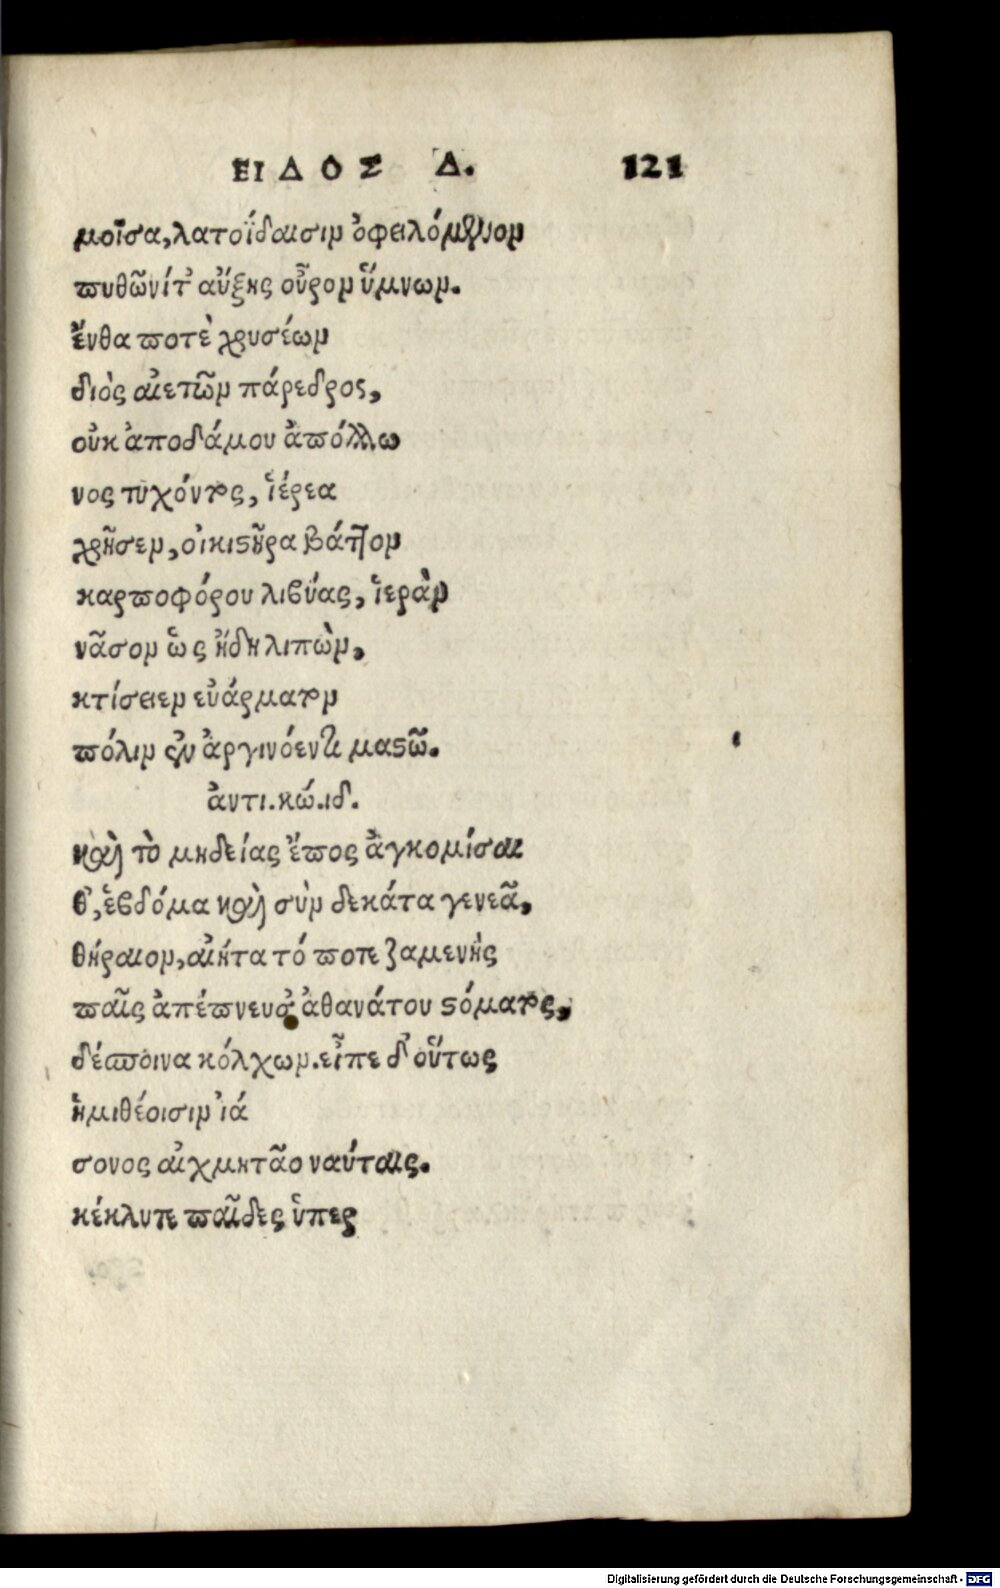 ΕΙΔΟΣ Δ. 121
μοῖσα, λατοΐδαισιν ὀφειλόμενον
πυθῶνίτ' αὔξης οὖρον ὕμνων.
ἔνθα ποτὲ χρυσέων
διὸς αἰετῶν πάρεδρος,
οὐκ ἀποδάμου ἀπόλλω
νος τυχόντος, ἱέρεα
χρῆσεν, οἰκιστῆρα βάττον
καρποφόρου λιβύας, ἱερὰν
νᾶσον ὡς ἤδη λιπὼν,
κτίσειεν εὐάρματον
πόλιν ἐν ἀργινόεντι μαστῶ.
ἀντι.κώ.ιδ.
καὶ τὸ μηδείας ἔπος ἀγκομίσαι
θ', ἑβδόμα καὶ σὺν δεκάτα γενεᾶ,
θήραιον, αἰήτα τό ποτε ζαμενὴς
παῖς ἀπέπνευσ' ἀθανάτου στόματος,
δέσποινα κόλχων. εἶπε δ' οὕτως
ἡμιθέοισιν ἰά
σονος αἰχμητᾶο ναύταις.
κέκλυτε παῖδες ὑπερ
Digitalisierung gefördert durch die Deutsche Forschungsgemeinschaft - DFG